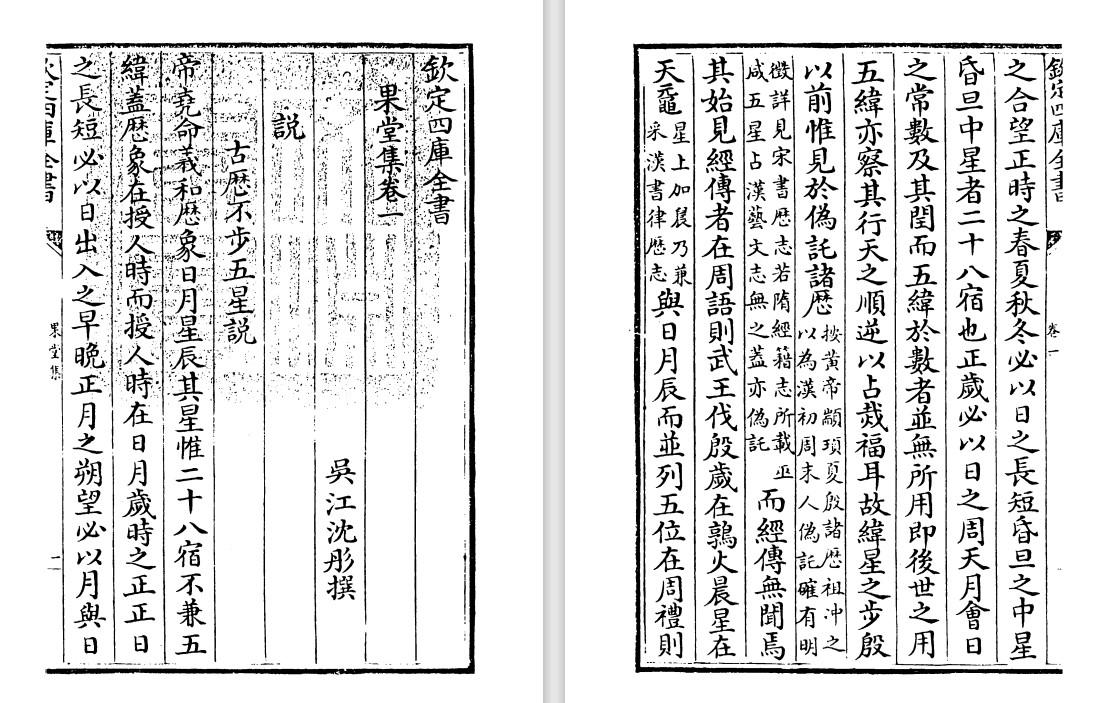 欽定四庫全書
果堂集卷一
吳江沈彤撰
説
古歴不步五星説
帝堯命羲和歴象日月星辰其星惟二十八宿不兼五
緯蓋歴象在授人時而授人時在日月歲時之正正日
之長短必以日出入之早晚正月之朔望必以月與日
欽定四庫全書
果堂集
一
欽定四庫全書
卷一
之合望正時之春夏秋冬必以日之長短昏旦之中星
昏旦中星者二十八宿也正歲必以日之周天月會日
之常數及其閏而五緯於數者並無所用即後世之用
五緯亦察其行天之順逆以占烖福耳故緯星之步殷
以前惟見於偽託諸歴按黄帝顓頊夏殷諸歴祖冲之以為漢初周末人偽託確有明
徵詳見宋書歴志若隋經籍志所載巫咸五星占漢藝文志無之蓋亦偽託而經傳無聞焉
其始見經傳者在周語則武王伐殷歲在鶉火晨星在
天黿星上加晨乃兼采漢書律歴志與日月辰而並列五位在周禮則